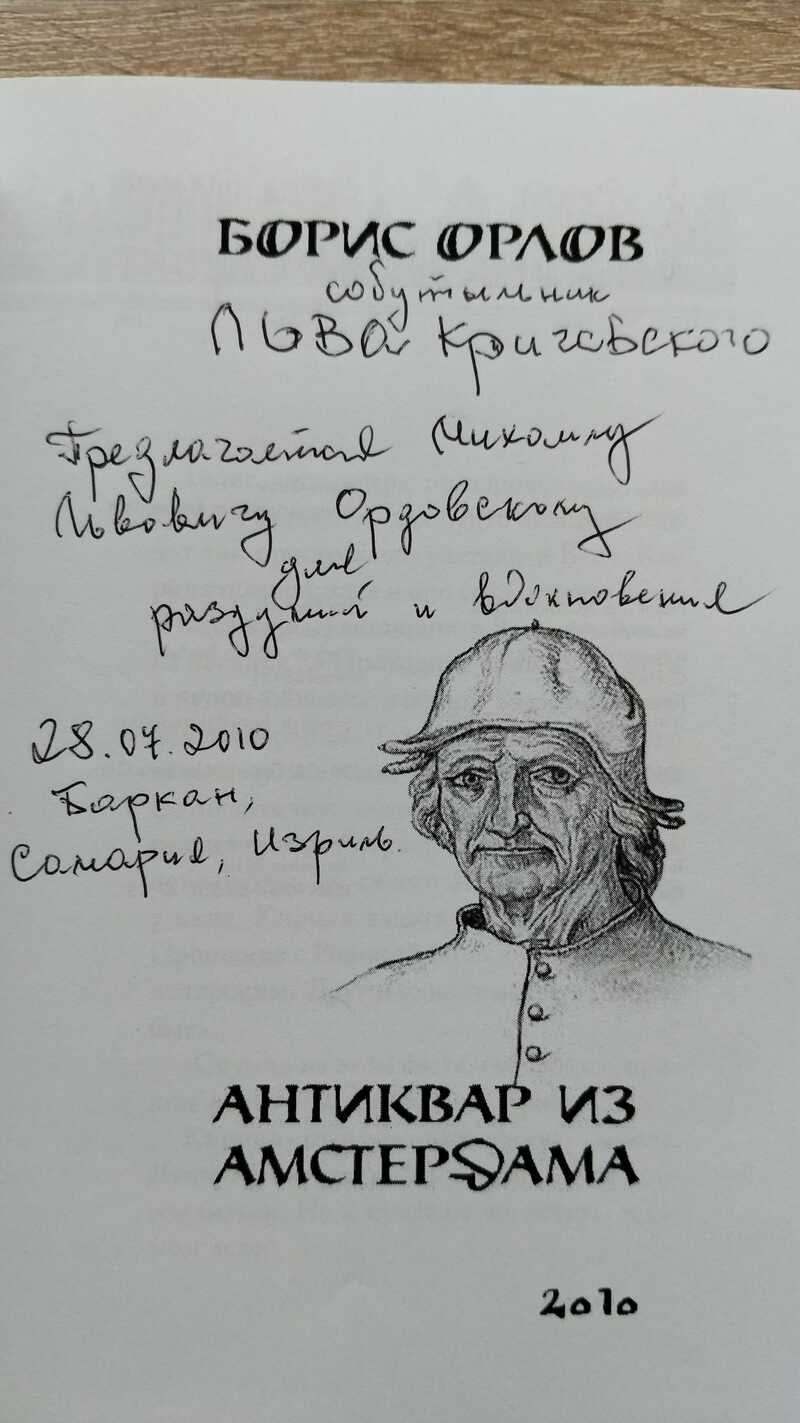 БОРИС ОРЛОВ
собутыльник
Льва Кричевского
Предлагается Михаилу
Львовичу Ордовскому
для
раздумий и вдохновения
28.07.2010
Баркан,
Самария, Изриль.
АНТИКВАР ИЗ
АМСТЕРДАМА
2010